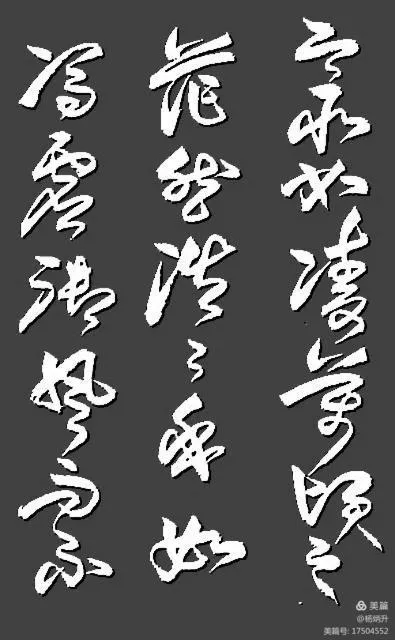 之所如凌萬頃之
茫然浩々乎如
馮虛御風而不
美篇
@杨炳升
美篇号: 17504552